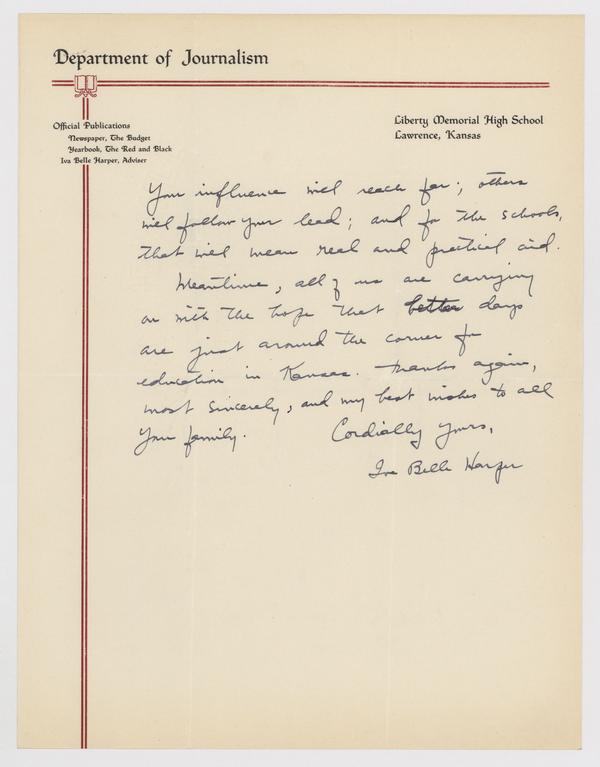 Department of Journalism
Official Publications
Newspaper, The Budget
Yearbook, The Red and Black
Iva Belle Harper, Adviser
Liberty Memorial High School
Lawrence, Kansas
Your influence will reach far; others
will follow your lead; and for the schools,
that will mean real and practical aid.
Meantime, all of us are carrying
on with the hope that better days
are just around the corner for
education in Kansas. Thanks again,
most sincerely, and my best wishes to all
your family.
Cordially yours,
Iva Belle Harper